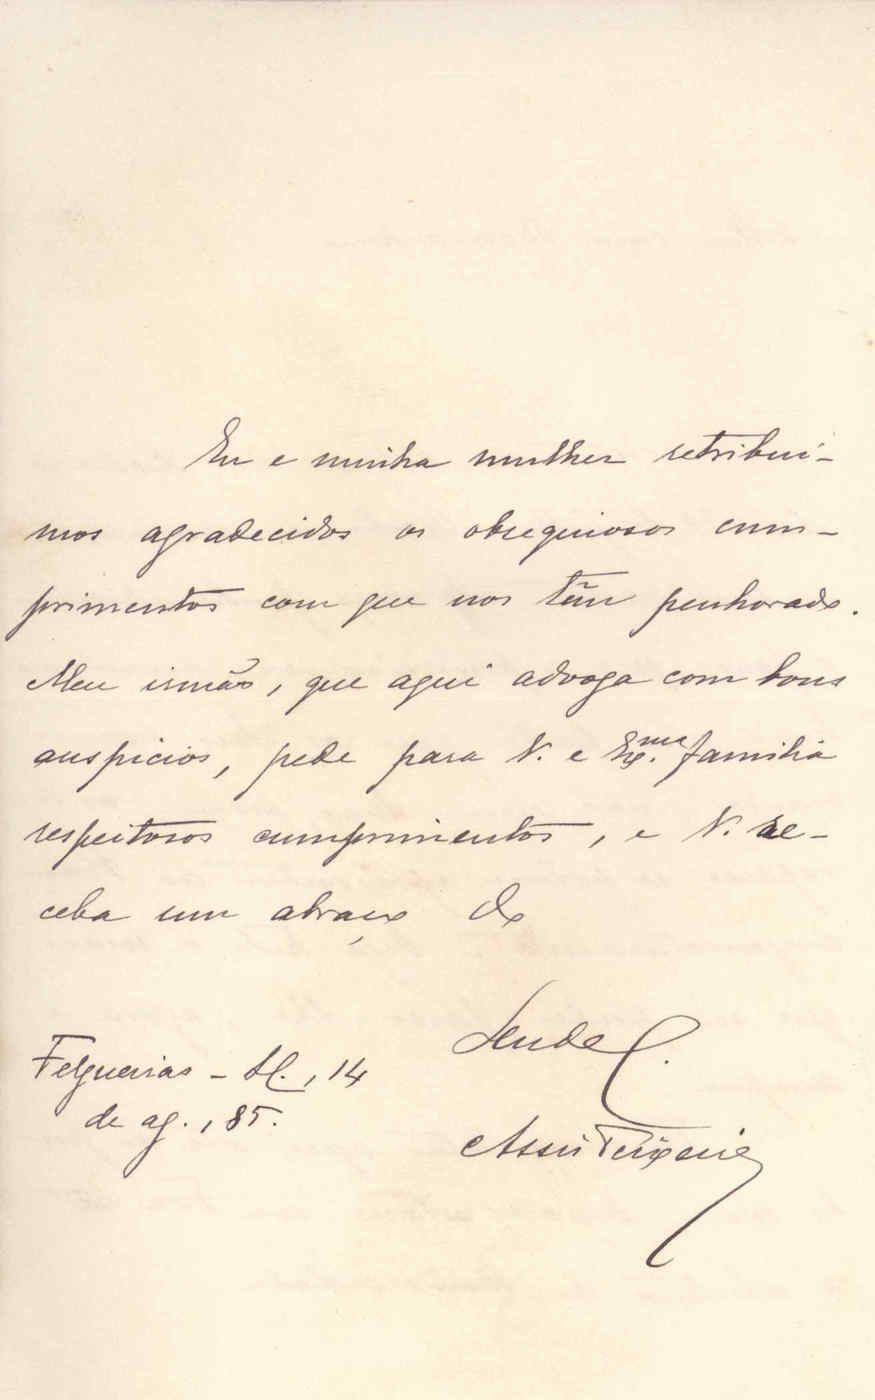 Eu e minha mulher retribui-
mos agradecidos os obsequiosos cum-
primentos com que nos têm penhorado.
Meu irmão, que aqui advoga com bons
auspicios, pede para V. e Ex.ma familia
respeitosos cumprimentos, e V. re-
ceba um abraço do
Felgueiras – S.C., 14
de ag., 85.
Teixeira